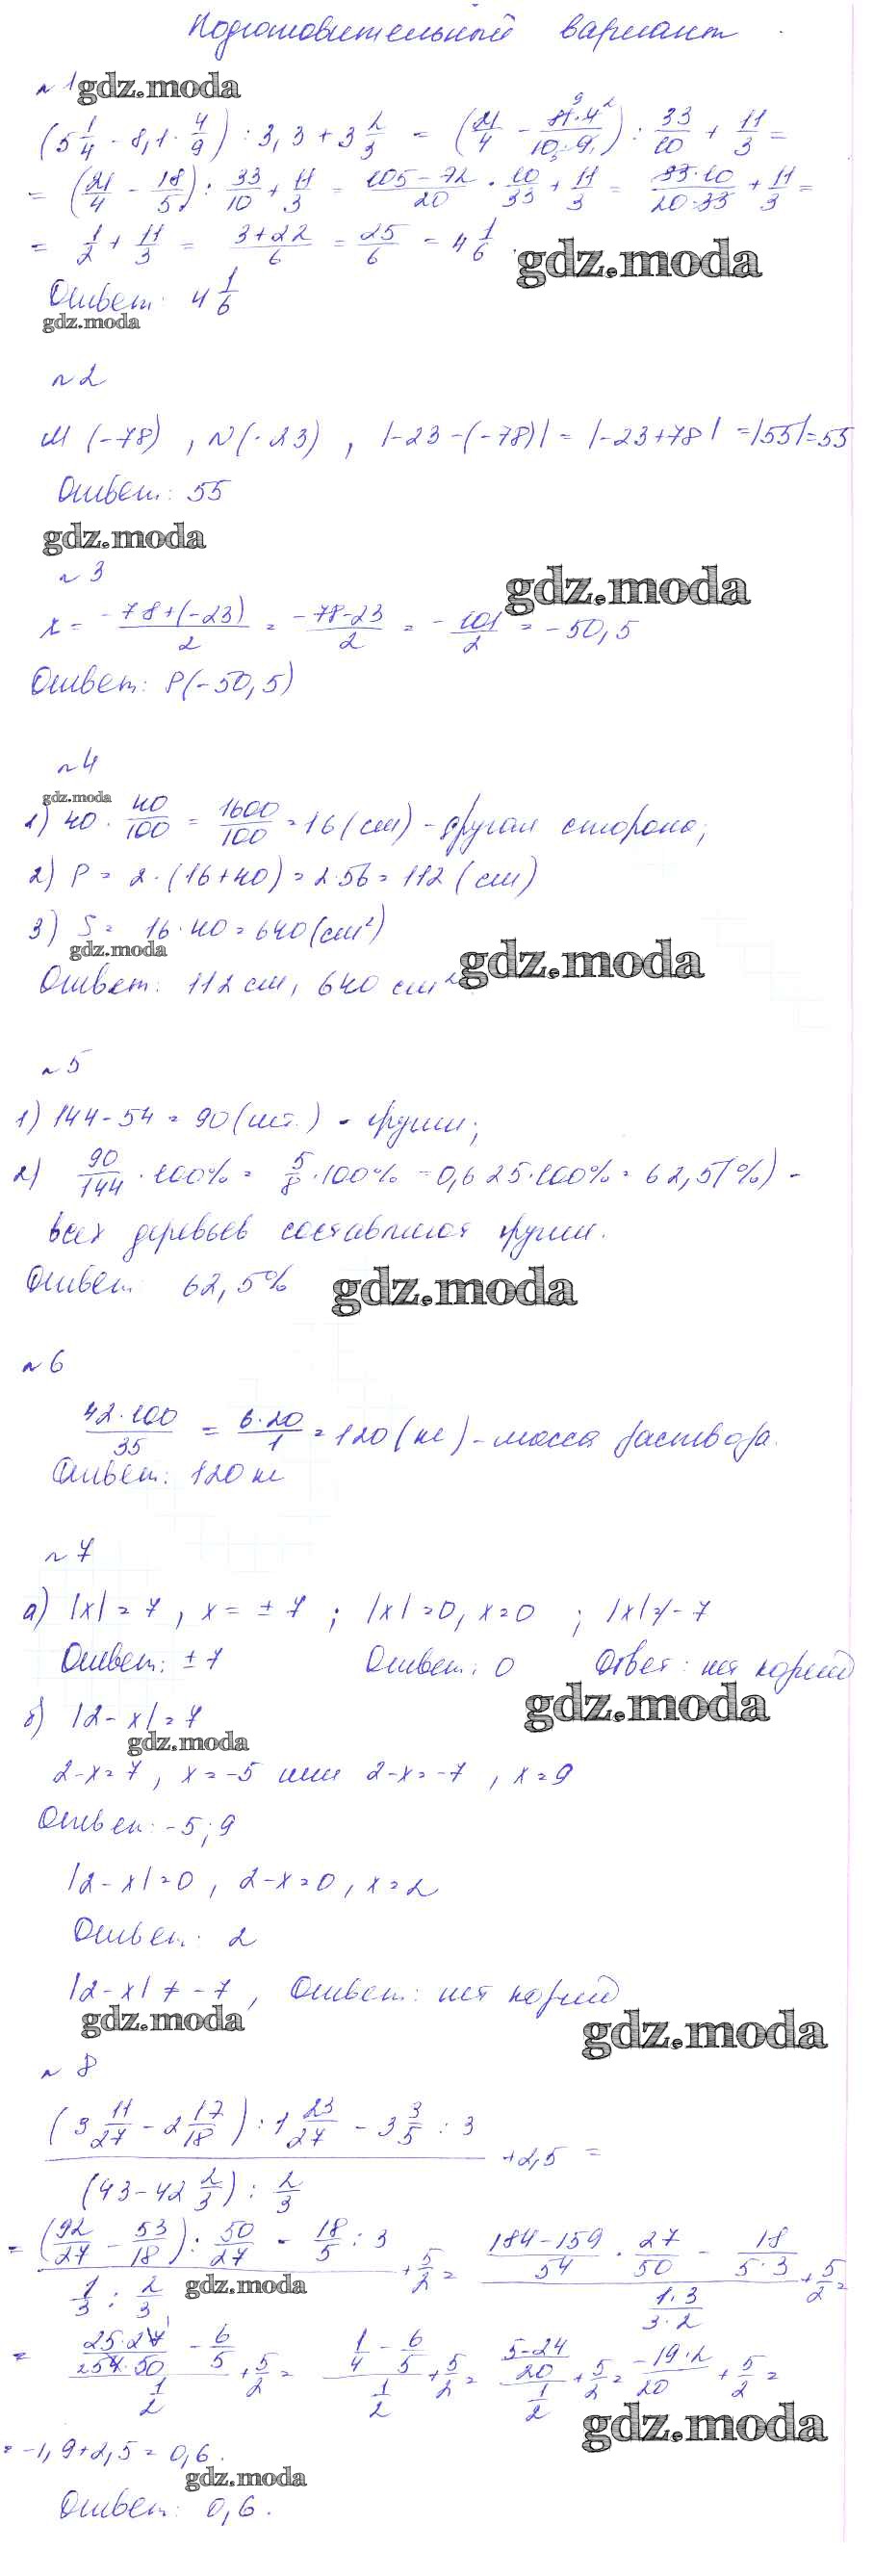 Подготовительный вариант
№1 gdz.moda
(5 1/4 - 8,1 · 4/9) : 3,3 + 3 2/3 = (21/4 - 81·4/10·9) : 33/10 + 11/3 =
= (21/4 - 18/5) : 33/10 + 11/3 = 105-72/20 · 10/33 + 11/3 = 33·10/20·33 + 11/3 =
= 1/2 + 11/3 = 3+22/6 = 25/6 = 4 1/6.
gdz.moda
Ответ: 4 1/6
gdz.moda
№2
M (-78) , N (-23) , |-23-(-78)| = |-23+78| = |55| = 55
Ответ: 55
gdz.moda
№3
gdz.moda
x = -78+(-23)/2 = -78-23/2 = -101/2 = -50,5
Ответ: P(-50,5)
№4
gdz.moda
1) 40 · 40/100 = 1600/100 = 16 (см) - другая сторона;
2) P = 2·(16+40) = 2·56 = 112 (см)
3) S = 16·40 = 640 (см²)
gdz.moda
Ответ: 112 см, 640 см²
gdz.moda
№5
1) 144-54 = 90 (шт.) - груши;
2) 90/144 · 100% = 5/8 · 100% = 0,625·100% = 62,5 (%) -
всех деревьев составляют груши.
Ответ: 62,5%
gdz.moda
№6
42·100/35 = 6·20/1 = 120 (кг) - масса раствора.
Ответ: 120 кг
№7
а) |x| = 7, x = ±7 ; |x| = 0, x = 0 ; |x| ≠ -7
Ответ: ±7 Ответ: 0 Ответ: нет корней
gdz.moda
б) |2-x| = 7
gdz.moda
2-x = 7, x = -5 или 2-x = -7, x = 9
Ответ: -5; 9
|2-x| = 0, 2-x = 0, x = 2
Ответ: 2
|2-x| ≠ -7, Ответ: нет корней
gdz.moda
gdz.moda
№8
(3 11/27 - 2 17/18) : 1 23/27 - 3 3/5 : 3
+2,5 =
(43-42 2/3) : 2/3
= (92/27 - 53/18) : 50/27 - 18/5 : 3 / 1/3 : 2/3 + 5/2 = 184-159/54 · 27/50 - 18/5·3 / 1·3/3·2 + 5/2 =
gdz.moda
= 25·27/54·50 - 6/5 / 1/2 + 5/2 = 1/4 - 6/5 / 1/2 + 5/2 = 5-24/20 / 1/2 + 5/2 = -19·2/20 + 5/2 =
gdz.moda
= -1,9+2,5 = 0,6.
gdz.moda
Ответ: 0,6.